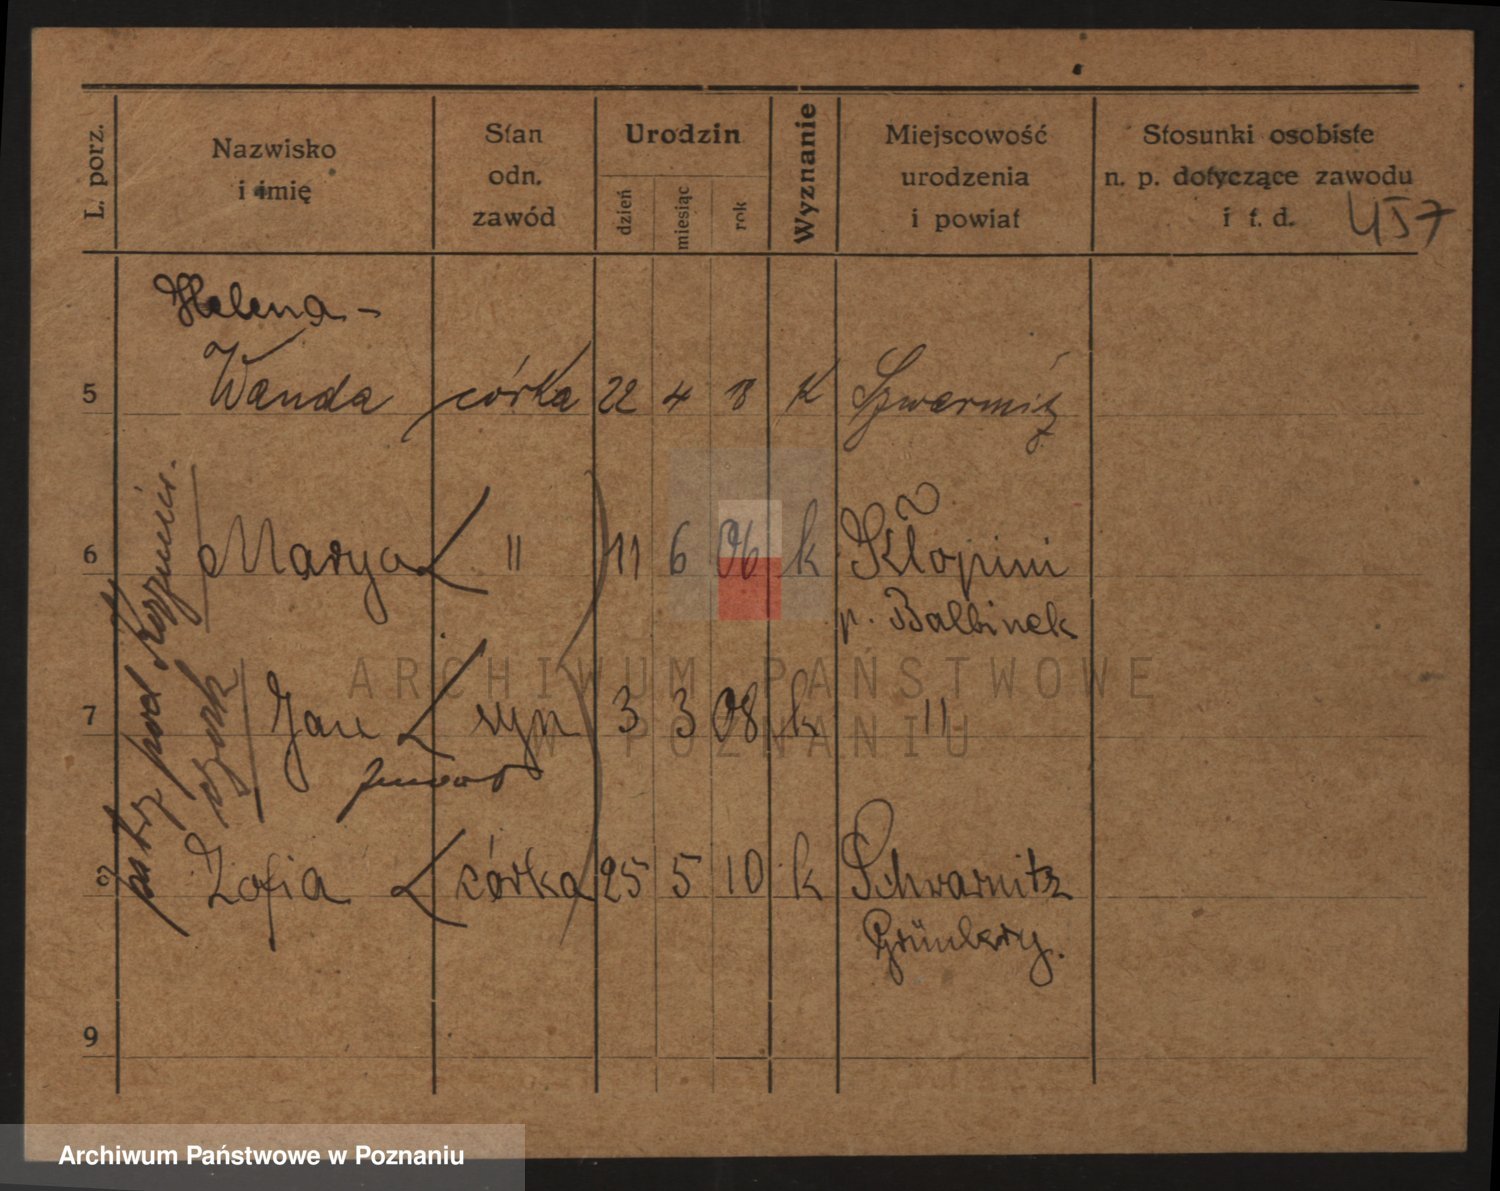 L. porz.
Nazwisko
i imię
Stan
odn.
zawód
Urodzin
dzień
miesiąc
rok
Wyznanie
Miejscowość
urodzenia
i powiat
Stosunki osobiste
n. p. dotyczące zawodu
i t. d.
457
Helena -
5 Wanda córka 22 4 18 K Szwarmitz
6 Marya " 11 6 06 k Kłopini
p. Balbinek
7 Jan syn 3 3 08 k "
8 Zofia córka 25 5 10 k Schwarmitz
Grünberg.
9
patrz pod
ARCHIWUM PAŃSTWOWE
W POZNANIU
Archiwum Państwowe w Poznaniu